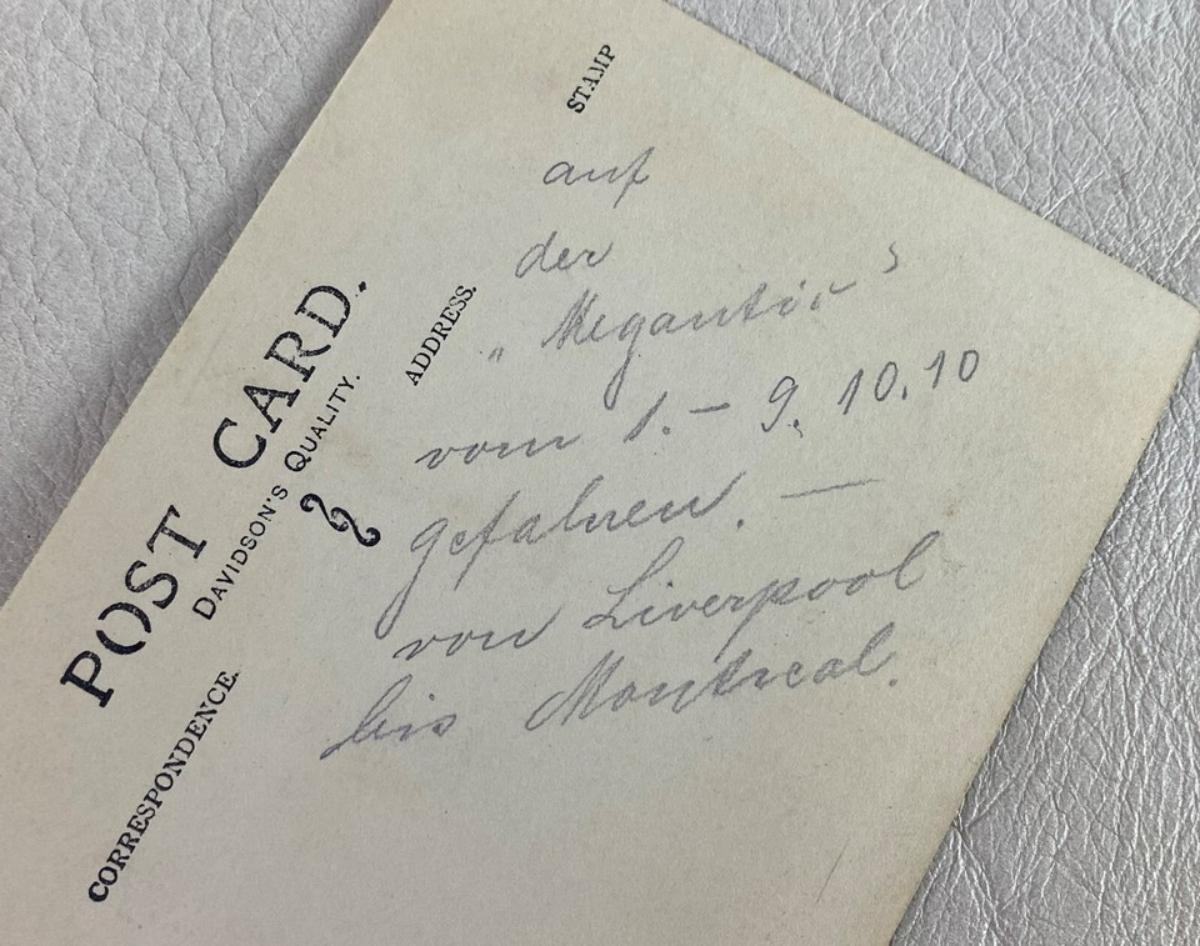 POST CARD.
DAVIDSON'S QUALITY.
CORRESPONDENCE.
ADDRESS.
STAMP
auf
der
„Megantic“
vom 1. – 9. 10. 10
gefahren. —
von Liverpool
bis Montreal.